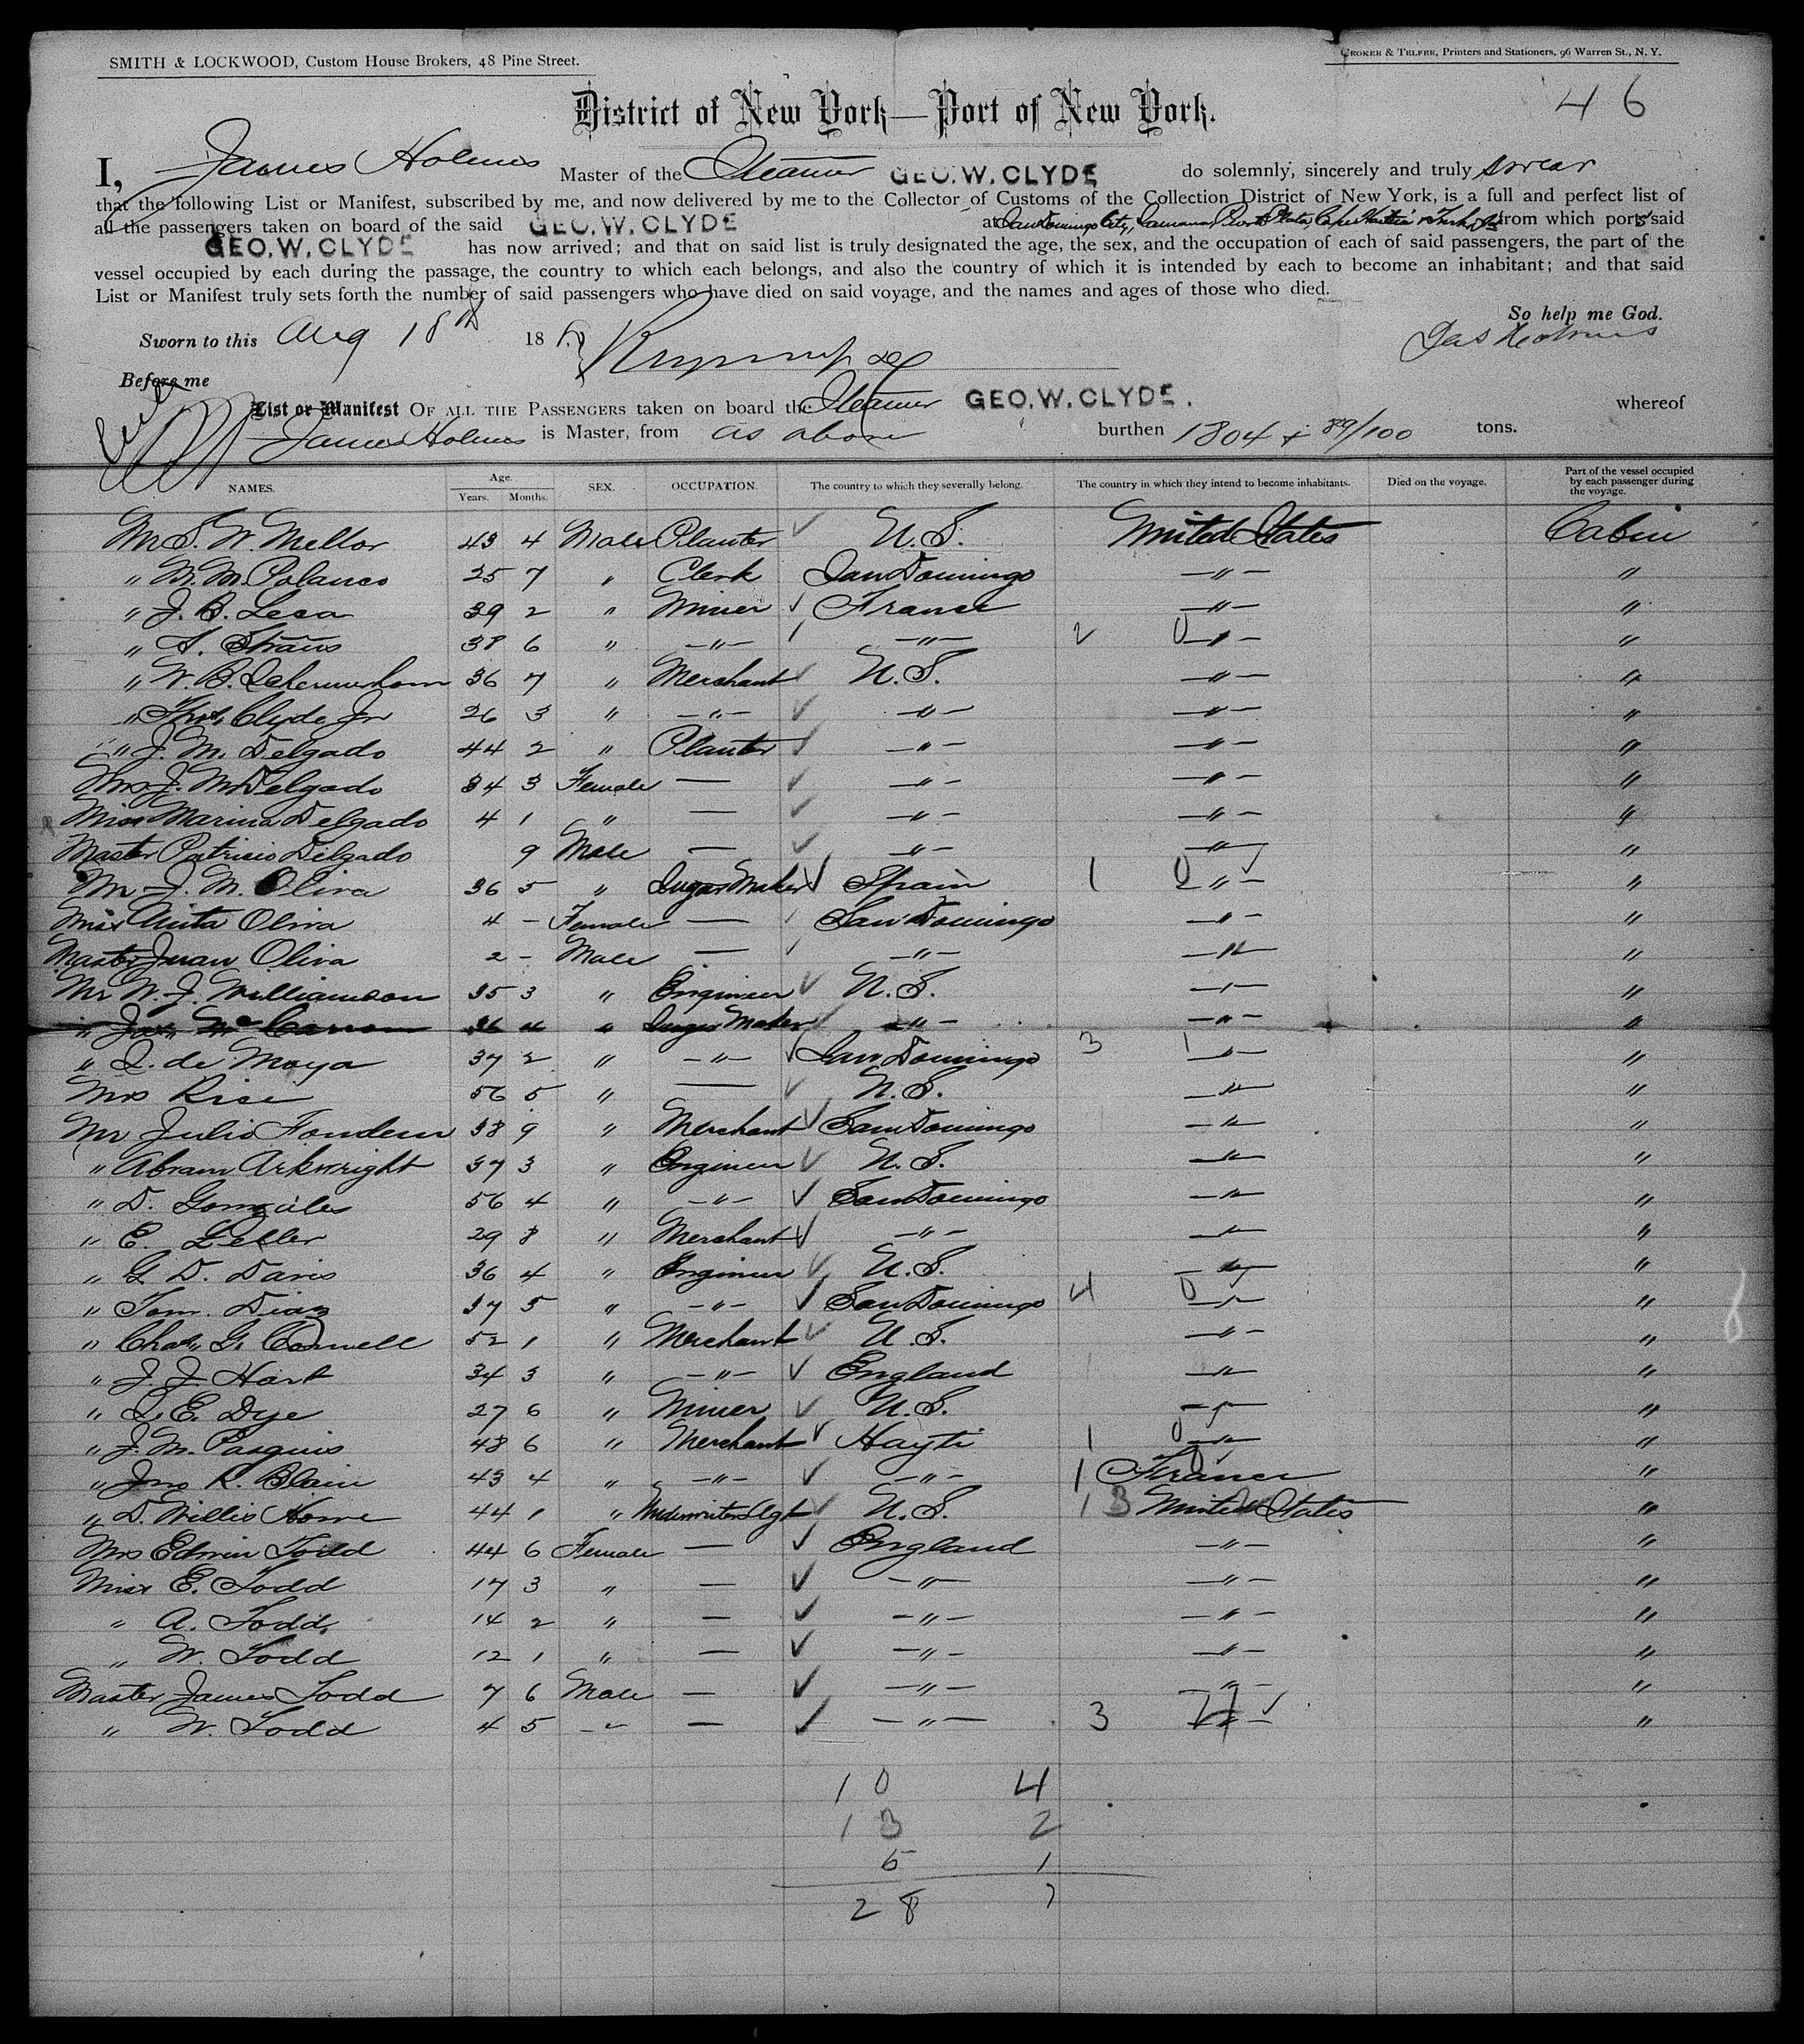 SMITH & LOCKWOOD, Custom House Brokers, 48 Pine Street.
CROKER & TELFER, Printers and Stationers, 96 Warren St., N. Y.
46
District of New York—Port of New York.
I, James Holmes Master of the Steamer GEO. W. CLYDE do solemnly, sincerely and truly swear
that the following List or Manifest, subscribed by me, and now delivered by me to the Collector of Customs of the Collection District of New York, is a full and perfect list of
all the passengers taken on board of the said GEO. W. CLYDE at San Domingo City, Samana, Porto Plata, Cape Hatien & Turks Is from which ports said
GEO. W. CLYDE has now arrived; and that on said list is truly designated the age, the sex, and the occupation of each of said passengers, the part of the
vessel occupied by each during the passage, the country to which each belongs, and also the country of which it is intended by each to become an inhabitant; and that said
List or Manifest truly sets forth the number of said passengers who have died on said voyage, and the names and ages of those who died.
So help me God.
Sworn to this Aug 18th 188
Jas Holmes
Before me
List or Manifest OF ALL THE PASSENGERS taken on board the Steamer GEO. W. CLYDE. whereof
James Holmes is Master, from as above burthen 1804 + 89/100 tons.
NAMES. Age. Years. Months. SEX. OCCUPATION. The country to which they severally belong. The country in which they intend to become inhabitants. Died on the voyage. Part of the vessel occupied by each passenger during the voyage.
Mr S. W. Mellor 43 4 Male Planter U.S. United States Cabin
" M. Polanco 25 7 " Clerk San Domingo —"— "
" J. B. Lesa 39 2 " Miner France —"— "
" A. Straus 38 6 " —"— —"— 2 0 —"— "
" W. B. Schermerhorn 36 7 " Merchant U.S. —"— "
" Thos. Clyde Jr 26 3 " —"— —"— —"— "
" J. M. Delgado 44 2 " Planter —"— —"— "
Mrs J. M. Delgado 34 3 Female — —"— —"— "
Miss Marina Delgado 4 1 " — —"— —"— "
Master Patricio Delgado 9 Male — —"— —"— "
Mr J. M. Oliva 36 5 " Sugar Maker Spain 1 0 —"— "
Miss Anita Oliva 4 - Female — San Domingo —"— "
Master Juan Oliva 2 - Male — —"— —"— "
Mr W. J. Williamson 35 3 " Engineer U.S. —"— "
" 36 4 " Sugar Maker —"— —"— "
" de Moya 37 2 " —"— San Domingo 3 1 —"— "
Mrs Rise 56 5 " — U.S. —"— "
Mr Julio Fondeur 38 9 " Merchant San Domingo —"— "
" Abram Arkwright 37 3 " Engineer U.S. —"— "
" D. Gonzales 56 4 " —"— San Domingo —"— "
" E. Zeller 29 8 " Merchant —"— —"— "
" G. D. Davis 36 4 " Engineer U.S. —"— "
" Tom. Diaz 37 5 " —"— San Domingo 4 0 —"— "
" Chas. G. Cornwell 52 1 " Merchant U.S. —"— "
" J. J. Hart 34 3 " —"— England —"— "
" E. Dye 27 6 " Miner U.S. —"— "
" J. M. Pasquis 48 6 " Merchant Hayti 1 0 —"— "
" Jno R. Blain 43 4 " —"— —"— 1 France "
" D. Willis Horne 44 1 " Underwriters Agt U.S. 13 United States "
Mrs Edwin Todd 44 6 Female — England —"— "
Miss E. Todd 17 3 " — —"— —"— "
" A. Todd 14 2 " — —"— —"— "
" W. Todd 12 1 " — —"— —"— "
Master James Todd 7 6 Male — —"— —"— "
" W. Todd 4 5 —"— — —"— 3 —"— "
10 4
13 2
5 1
28 7